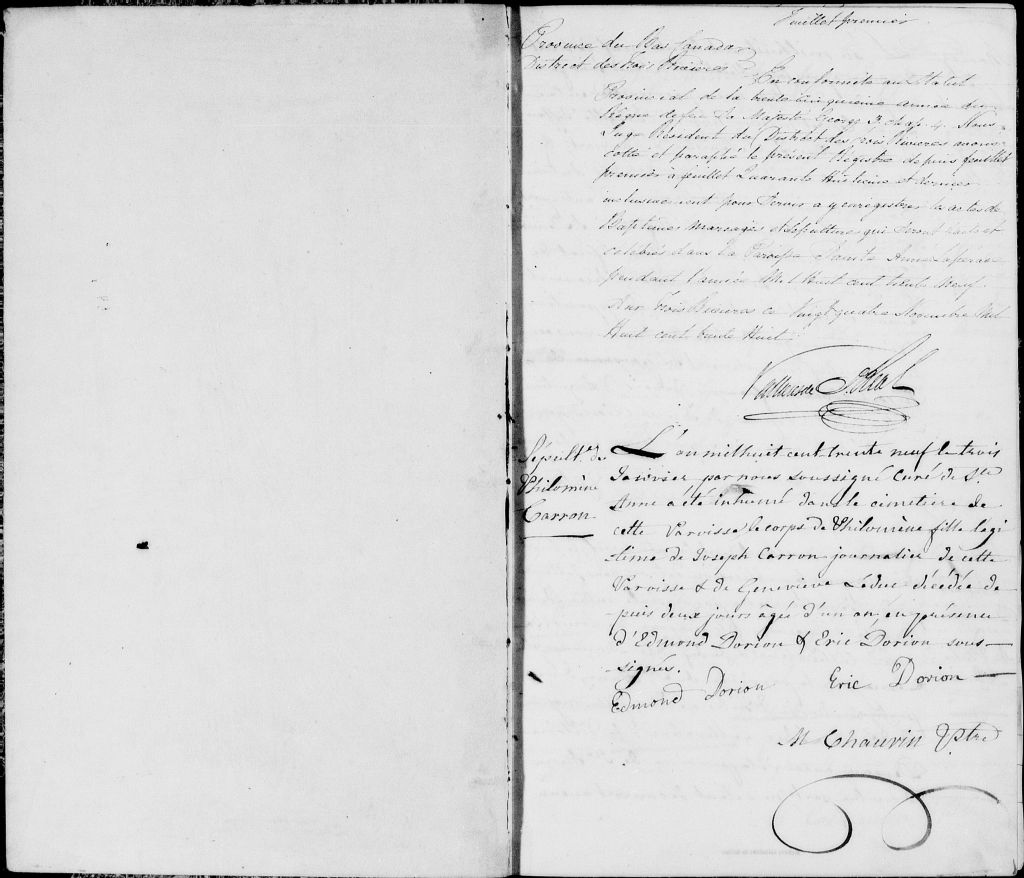 Feuillet premier
Province du Bas Canada
District des Trois Rivieres
En conformité au Statut
Provincial de la trente cinquieme année du
Règne de feu Sa Majesté George 3 chap. 4. Nous
Juge Résident du District des Trois Rivieres avons
cotté et paraphé le présent Régistre depuis feuillet
premier a feuillet Quarante Huitieme et dernier
inclusivement pour servir a y enregistrer les actes de
Baptêmes Marriages et Sépultures qui seront faits et
célébrés dans la Paroisse Sainte Anne
pendant l'année Mil Huit cent trente Neuf
Aux Trois Rivieres ce Vingt quatre Novembre Mil
Huit cent trente Huit.
Sépultre de
Philomène
Carron
L'an mil huit cent trente neuf le trois
Janvier par nous soussigné Curé de Ste
Anne a été inhumé dans le cimetière de
cette Paroisse le corps de Philomène fille legi
time de Joseph Carron journalier de cette
Paroisse & de Geneviève Leduc décédée de
puis deux jours âgée d'un an, en présence
d'Edmond Dorion & Eric Dorion sous-
signés.
Edmond Dorion Eric Dorion
M Chauvin Ptre